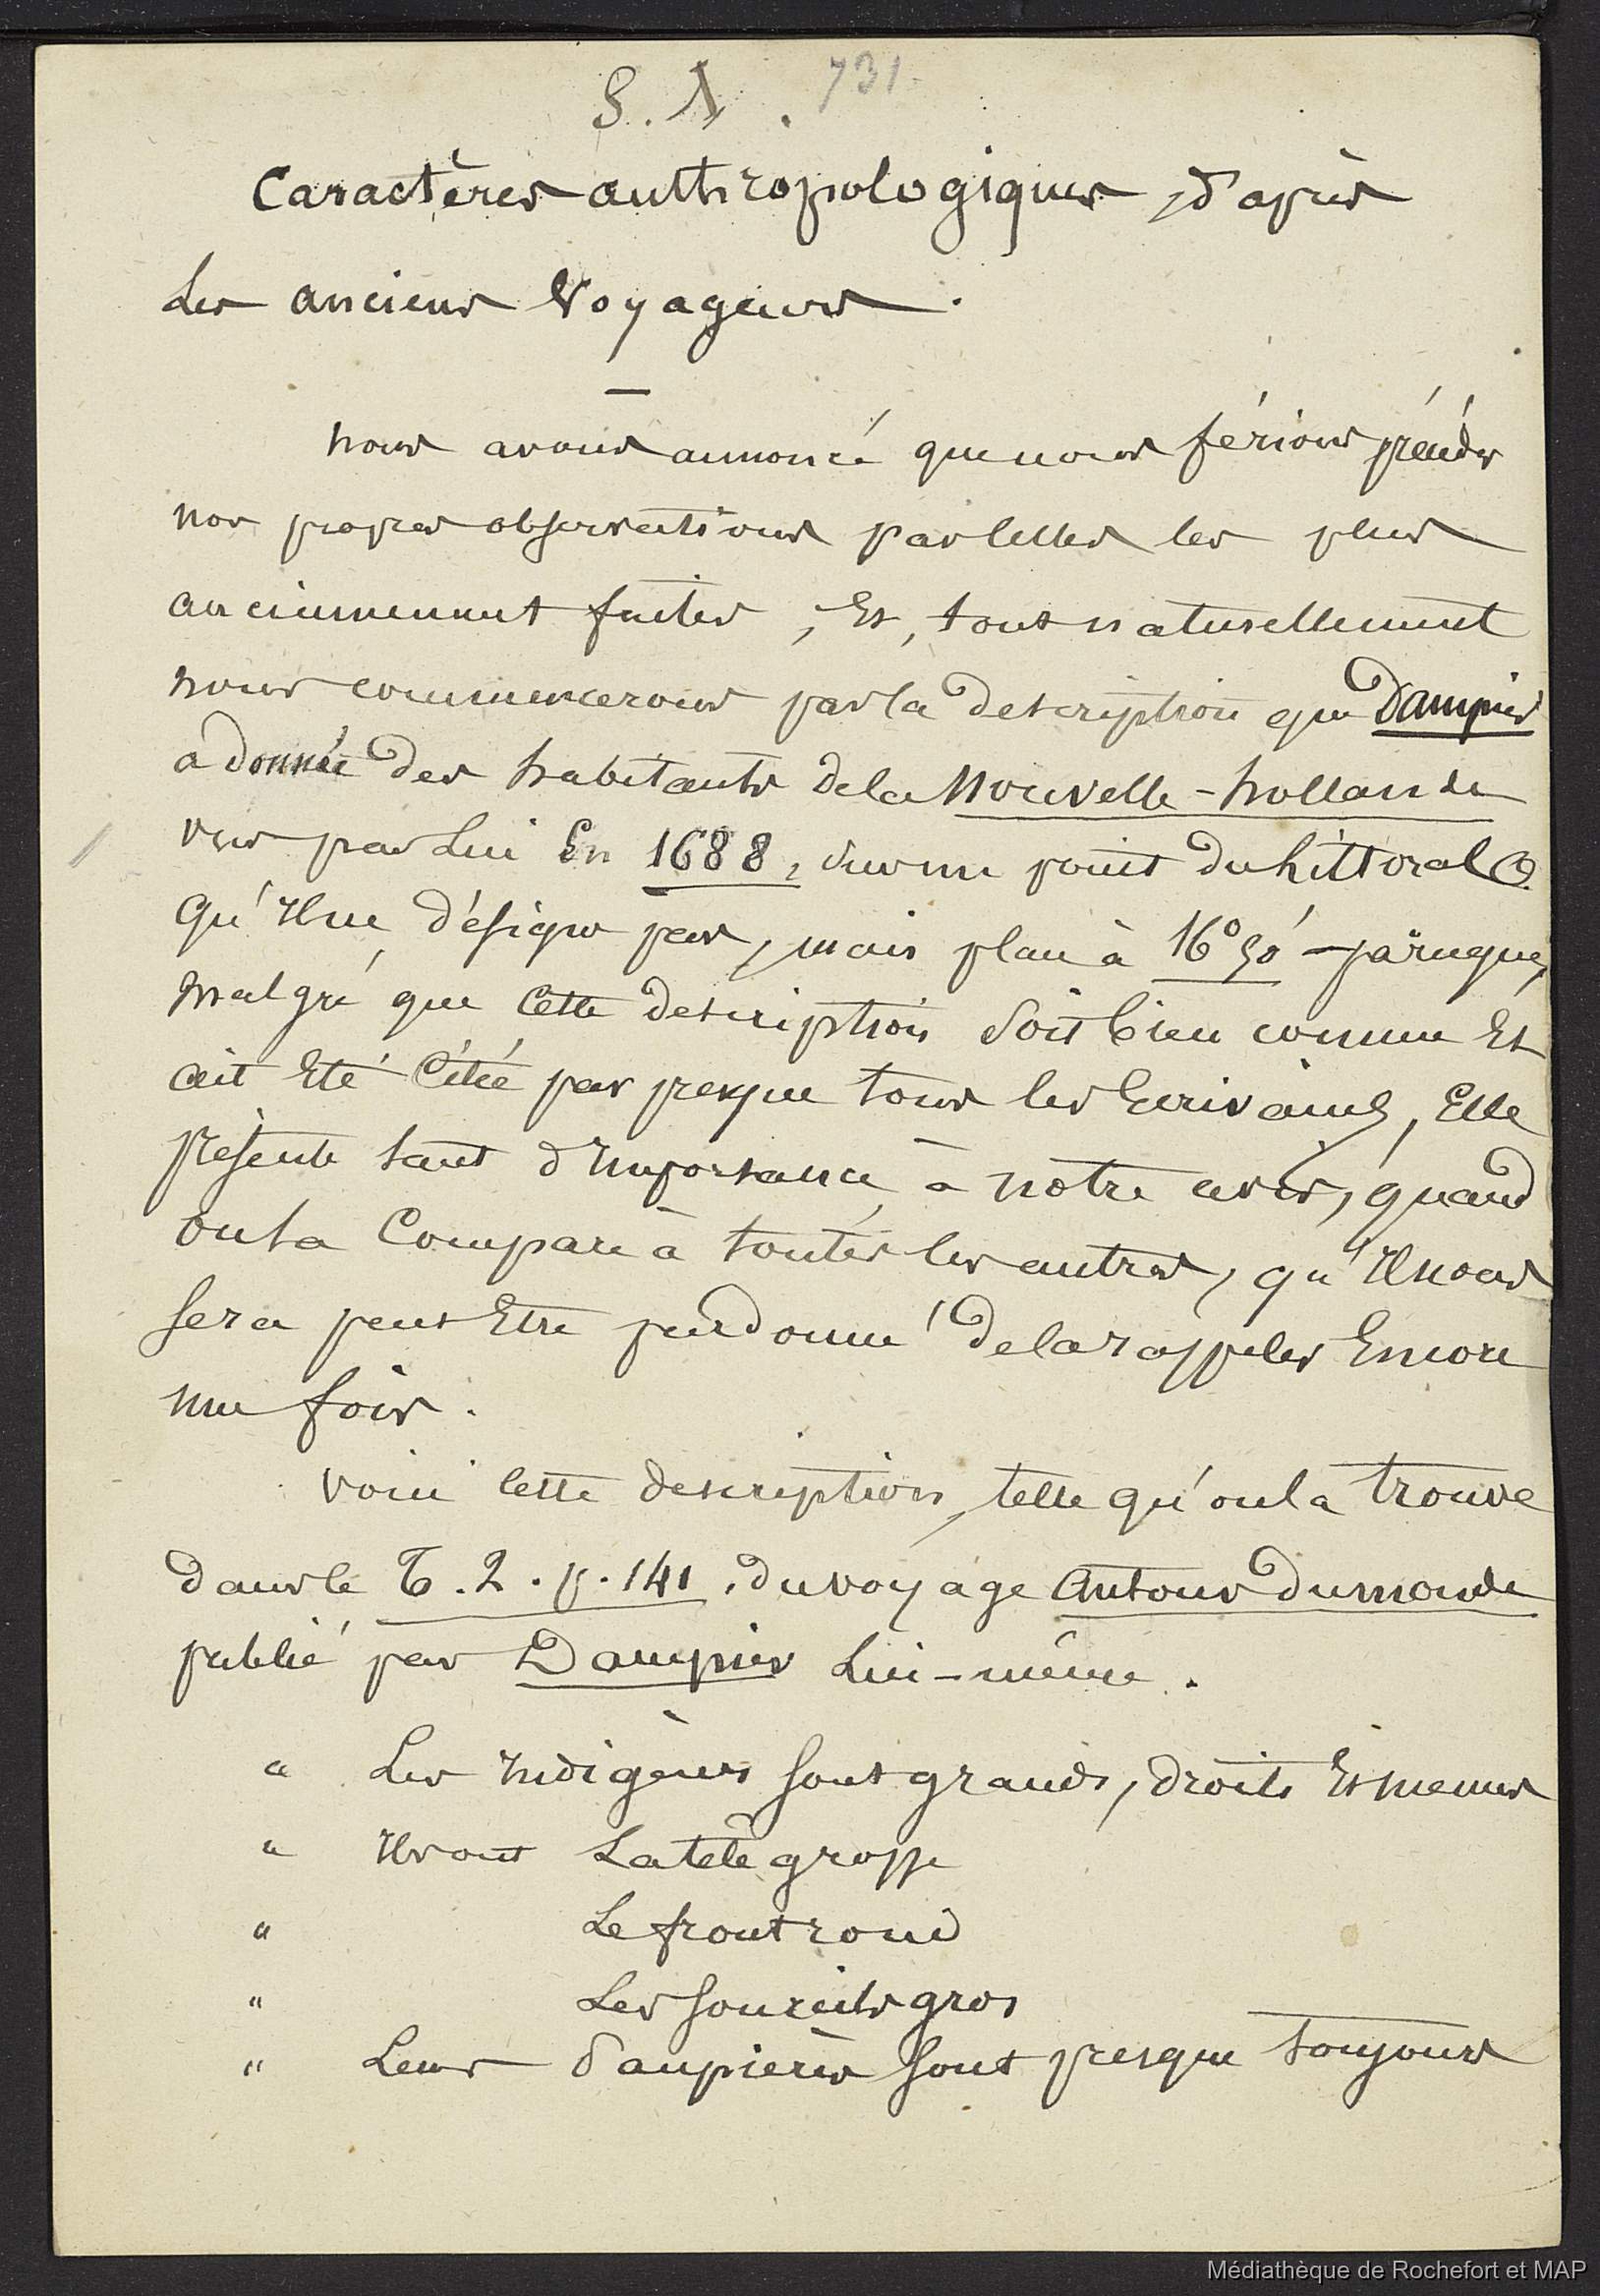 S. 1. 731
Caractères anthropologiques, d'après
Les anciens Voyageurs.
nous avons annoncé que nous férions précéder
nos propres observations par celles les plus
anciennement faites, Et, tout naturellement
nous commencerons par la description que Dampier
a donnée des habitants de la Nouvelle-hollande
vus par Lui En 1688, sur un point du Littoral O.
qu'Il ne désigne pas, mais placé à 16° 50'
malgré que Cette description soit bien connue Et
ait Eté Citée par presque tous les Ecrivains, Elle
présente tant d'Importance, à notre avis, quand
on la Compare à toutes les autres, qu'Il nous
sera peut Etre pardonné de la rappeler Encore
une fois.
voici Cette description, telle qu'on la trouve
dans le T. 2. p. 141. du voyage Autour du monde
publié par Dampier Lui-même.
" Les Indigènes sont grands, droits Et menus
" Ils ont La tête grosse
" Le front rond
" Les sourcils gros
" Leurs paupières sont presque toujours
Médiathèque de Rochefort et MAP